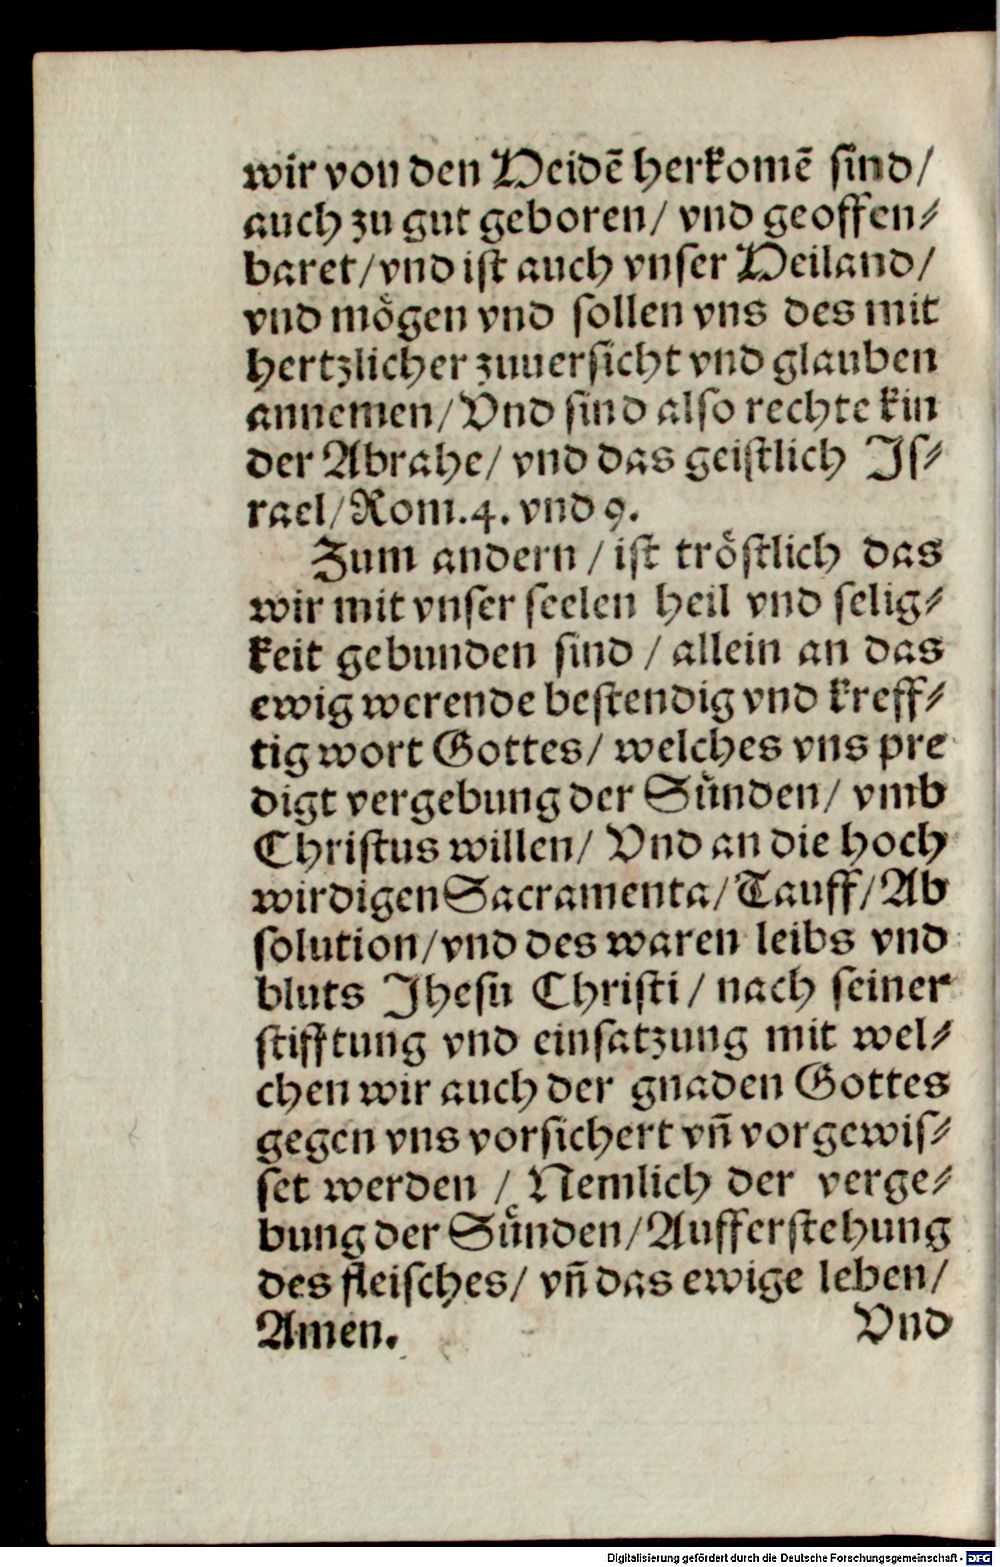 wir von den Heidē herkomē sind/
auch zu gut geboren/ vnd geoffen⸗
baret/vnd ist auch vnser Heiland/
vnd mögen vnd sollen vns des mit
hertzlicher zuuersicht vnd glauben
annemen/Vnd sind also rechte kin
der Abrahe/ vnd das geistlich Is⸗
rael/Rom.4. vnd 9.
Zum andern /ist tröstlich das
wir mit vnser seelen heil vnd selig⸗
keit gebunden sind / allein an das
ewig werende bestendig vnd kreff⸗
tig wort Gottes/ welches vns pre
digt vergebung der Sünden/ vmb
Christus willen/ Vnd an die hoch
wirdigen Sacramenta/Tauff/Ab
solution/vnd des waren leibs vnd
bluts Jhesu Christi/ nach seiner
stifftung vnd einsatzung mit wel⸗
chen wir auch der gnaden Gottes
gegen vns vorsichert vn̄ vorgewis⸗
set werden / Nemlich der verge⸗
bung der Sünden/Aufferstehung
des fleisches/ vn̄ das ewige leben/
Amen. Vnd
Digitalisierung gefördert durch die Deutsche Forschungsgemeinschaft - DFG